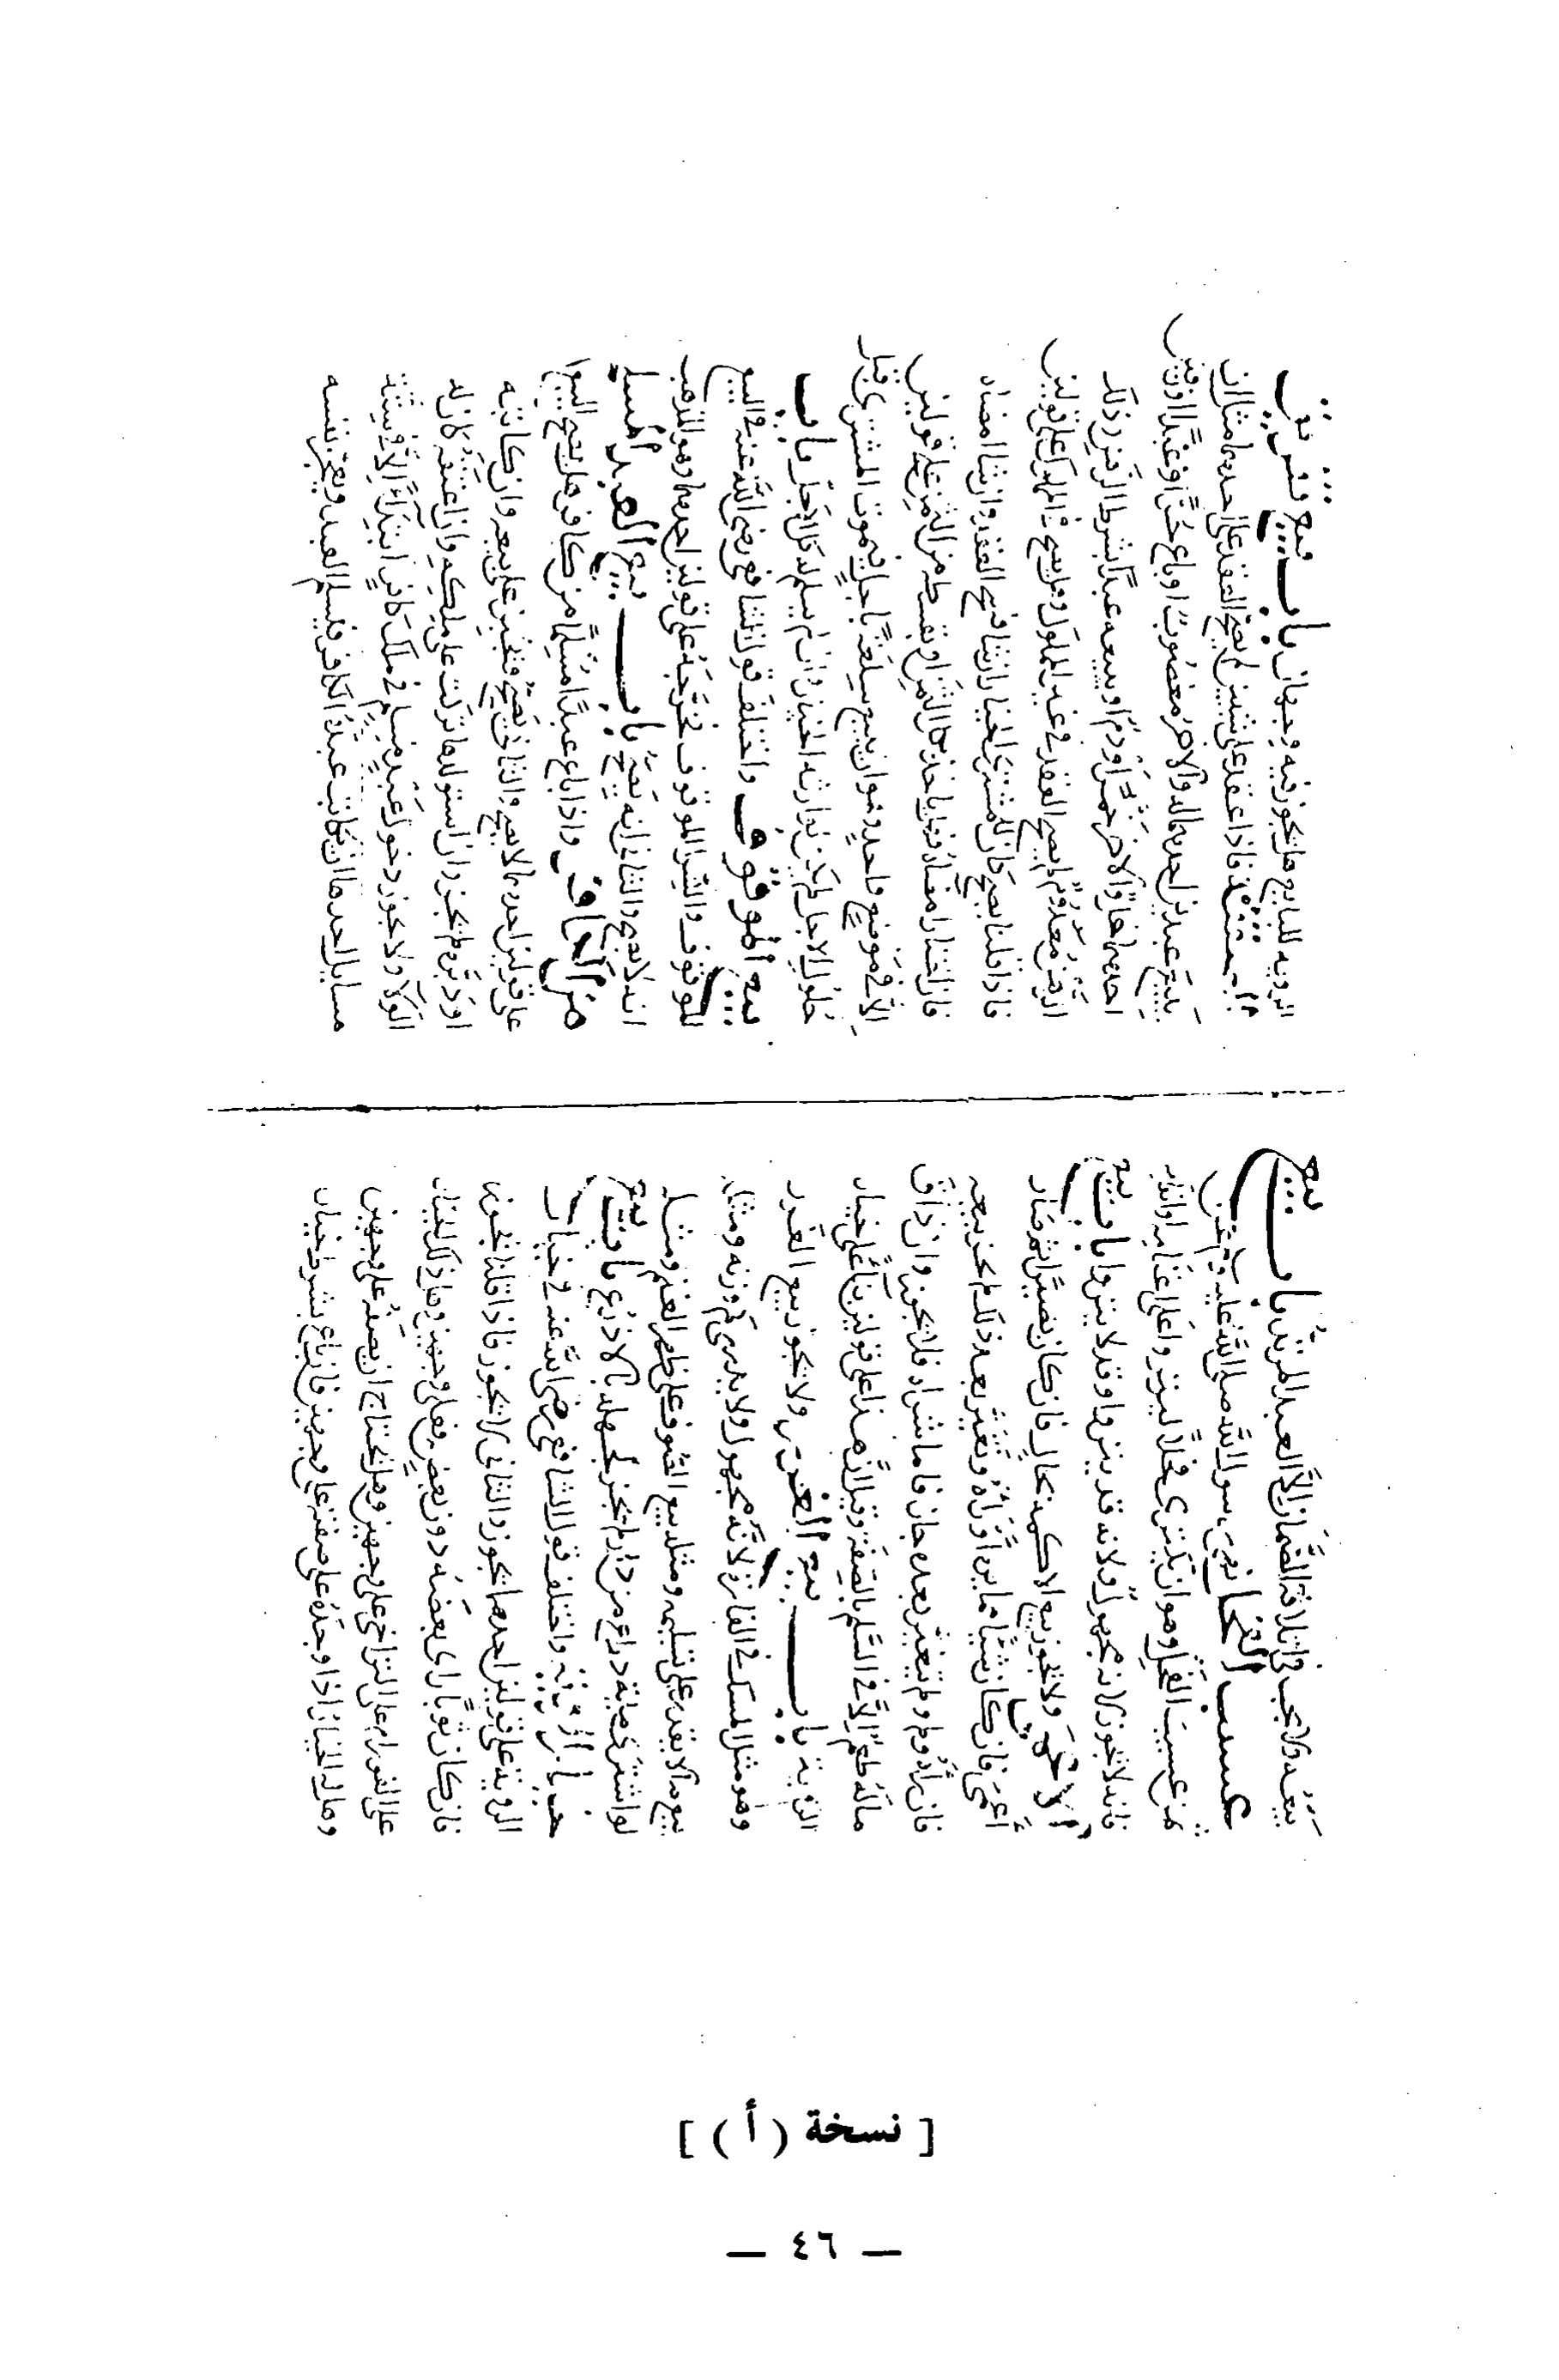 بيعه ولا يجب في اتلافه الضمان الا العبد المرتد باب بيع
عسب الفحل نهى رسول الله صلى الله عليه وسلم عن
ثمن عسيب الفحل وهو ان يكتري فحلا لينزو على اغنامه
فانه لا يجوز لانه مجهول ولانه قد ينزو وقد لا ينزو باب بيع
الاعمى ولا يجوز بيع الاكمه بحال فان كان بصيرا ثم صار
اعمى فان كان شيئا مما يراه وتغير بعد ذلك لم يجز بيعه
فان رآه ولم يتغير بعده جاز فاما شراه فلا يجوز وان ذاق
ماله طعم الا في السلم بالصفة وقيل ان هذا على قولين بناء على خيار
الرؤية باب بيع الغرر ولا يجوز بيع الغرر
وهو مثل المسك في الفارة لانه مجهول ولا يدرى كم وزنه ومثل
بيع ما لا يقدر على تسليمه ومثله بيع الصوف على ظهر الغنم ومثله
لو اشترى مائة ذراع من دار لم يجز لجهله بالاذرع باب بيع
خيار الرؤية واختلف قول الشافعي رضي الله عنه في خيار
الرؤية على قولين احدهما يجوز والثاني لا يجوز فاذا قلنا يجوز
فان كان ثوبا راى بعضه دون بعض فعلى وجهين وهل ذلك الخيار
على الفور ام على التراخي على وجهين وهل يحتاج ان يصفه على وجهين
وهل له الخيار اذا وجده على صفته على وجهين فان باع بشرط خيار
الرؤية للبايع هل يجوز فيه وجهان باب بيع تفريق
الصفقة فاذا عقد على شيئين لم يصح العقد على احدهما مثل ان
يبيع عبدين احدهما له والاخر مغصوب او باع حرا وعبدا
احدهما خلا والاخر خمرا او دما او يبيعه عبدا بشرط الرهن وذلك
الرهن معدوم لم يصح العقد في غير المملوك وهل يصح في المملوك على قولين
فاذا قلنا يصح كان للمشتري الخيار ان شا فسخ العقد وان شا امضاه
فان اختار امضاه فهل ياخذ بكل الثمن او بقسطه من الثمن على قولين
الا في موضع واحد وهو ان يبيع سلعة الى اجل فيموت المشتري قبل
حلول الاجل لم يكن لوارثه الخيار وان لم يسلم له كل الاجل باب
بيع الموقوف واختلف قول الشافعي رضي الله عنه في البيع
الموقوف والشرا الموقوف على قولين احدهما وهو المذهب
انه لا يصح والثاني انه يصح باب بيع العبد المسلم
من الكافر واذا باع عبدا مسلما من كافر هل يصح البيع
على قولين احدهما لا يصح والثاني يصح على بيعه وان كاتبه
او دبره لم يجز وان استولدها تركت على ملكه وان اعتقه كان له
الولا ولا يجوز دخول عبد مسلم في ملك كافر ابتداء الا في ستة
مسايل احدها ان يكاتب عبده الكافر فيسلم العبد ويعجز نفسه
[ نسخة ( أ ) ]
— ٤٦ —